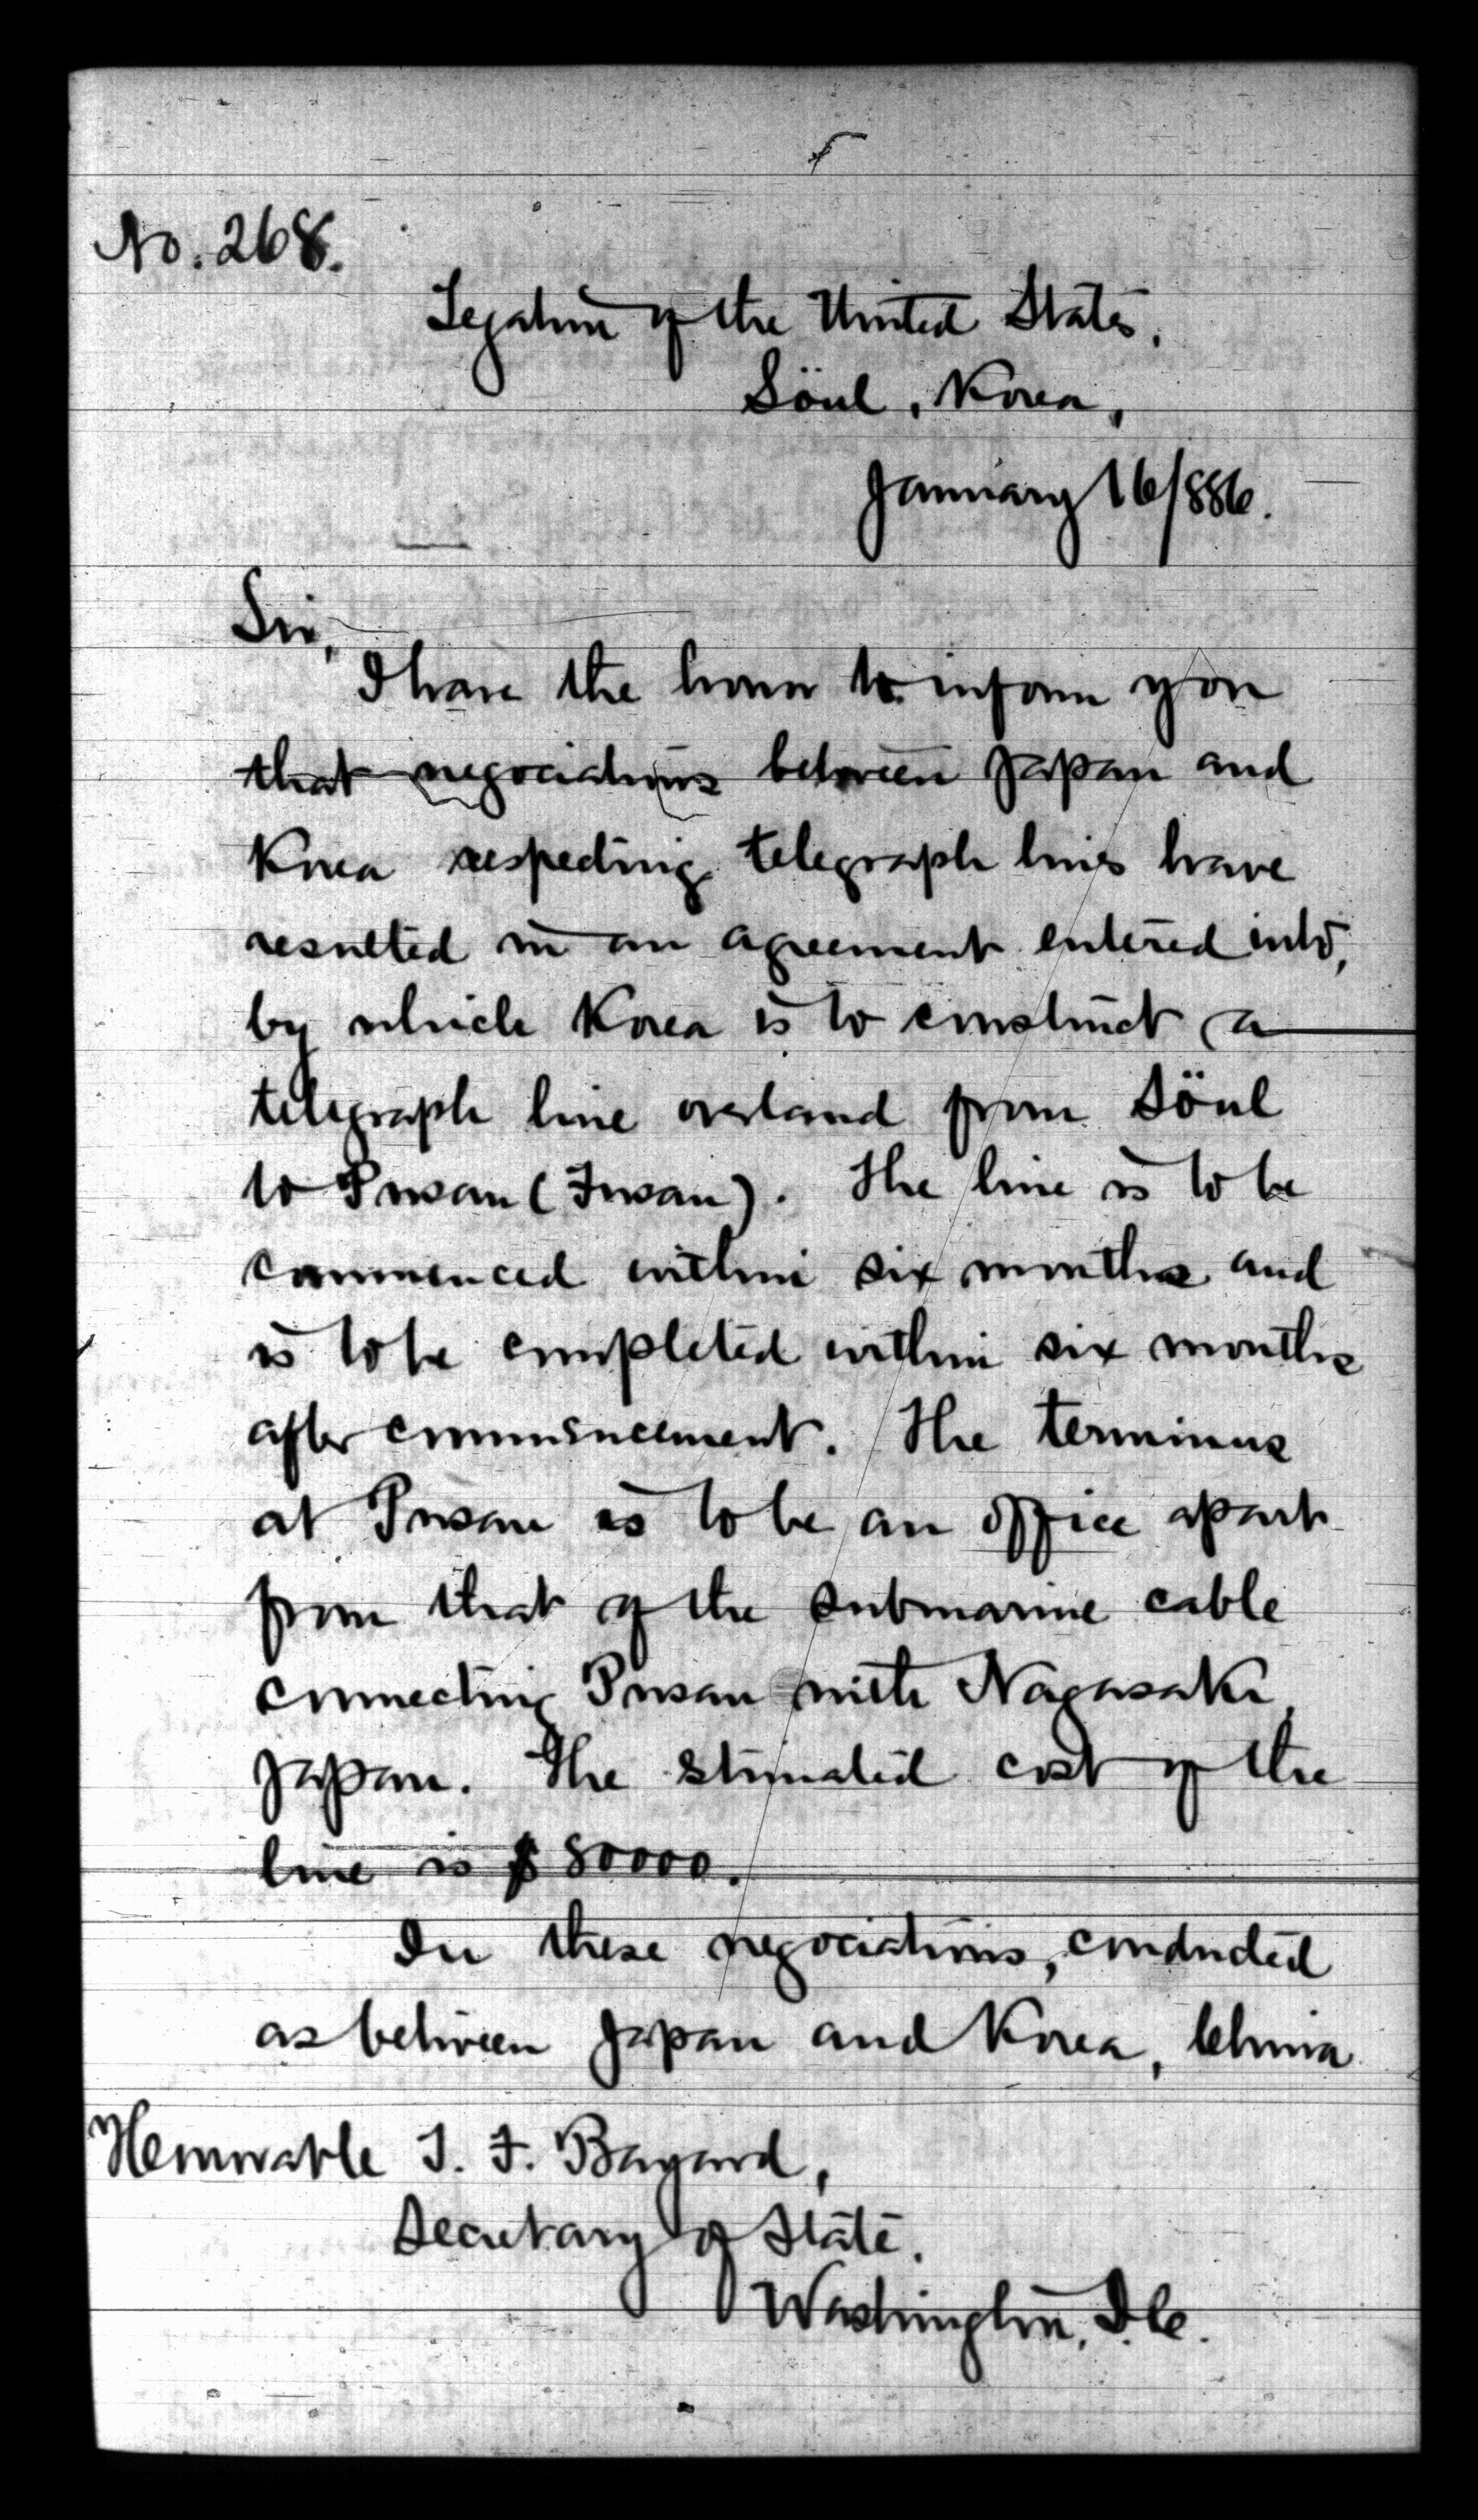 No. 268.
Legation of the United States,
Söul, Korea,
January 16/886.
Sir,
I have the honor to inform you
that negociations between Japan and
Korea respecting telegraph lines have
resulted in an agreement entered into,
by which Korea is to construct a
telegraph line overland from Söul
to Pusan (Fusan). The line is to be
commenced within six months and
is to be completed within six months
after commencement. The terminus
at Pusan is to be an office apart
from that of the submarine cable
connecting Pusan with Nagasaki,
Japan. The stimated cost of the
line is $80000.
In these negociations, conducted
as between Japan and Korea, China
Honorable T. F. Bayard,
Secretary of State.
Washington, D.C.